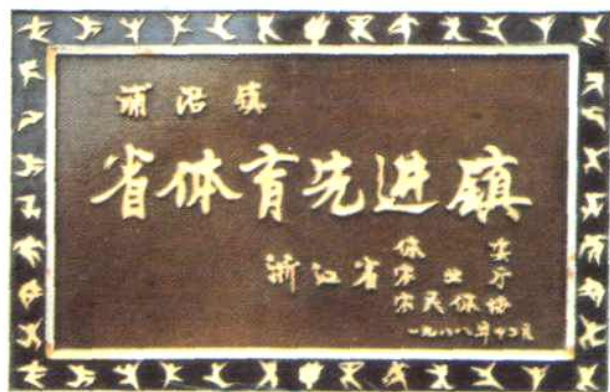 浦沿镇
省体育先进镇
浙江省
体 委
农 业 厅
农民体协
一九八八年十二月